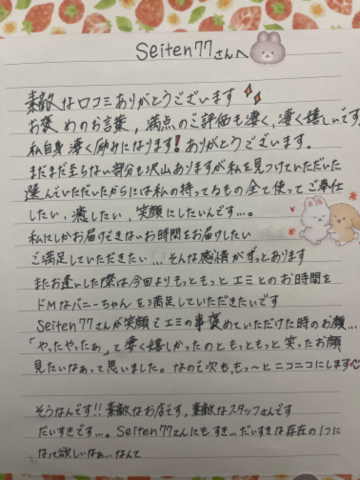 Seiten77さんへ
素敵な口コミありがとうございます
お褒めのお言葉，満点のご評価も凄く，凄く嬉しいです
私自身凄く励みになります！ありがとうございます。
まだまだ至らない部分も沢山ありますが私を見つけていただいた
選んでいただいたからには私の持ってるもの全て使ってご奉仕
したい，癒したい，笑顔にしたいんです…。
私にしかお届けできないお時間をお届けしたい
ご満足していただきたい…そんな感情がずっとあります
またお逢いした際は今回よりもっともっとエミとのお時間を
ドMなバニーちゃんを満足していただきたいです
Seiten77さんが笑顔でエミの事褒めていただけた時のお顔…
「やったやったぁ」って凄く嬉しかったのともっともっと笑ったお顔
見たいなぁって思いました。なので次ももっ〜とニコニコにします
そうなんです!!素敵なお店です，素敵なスタッフさんです
だいすきです…。Seiten77さんにもすき…だいすきな存在の1つに
なって欲しいなぁ…なんて